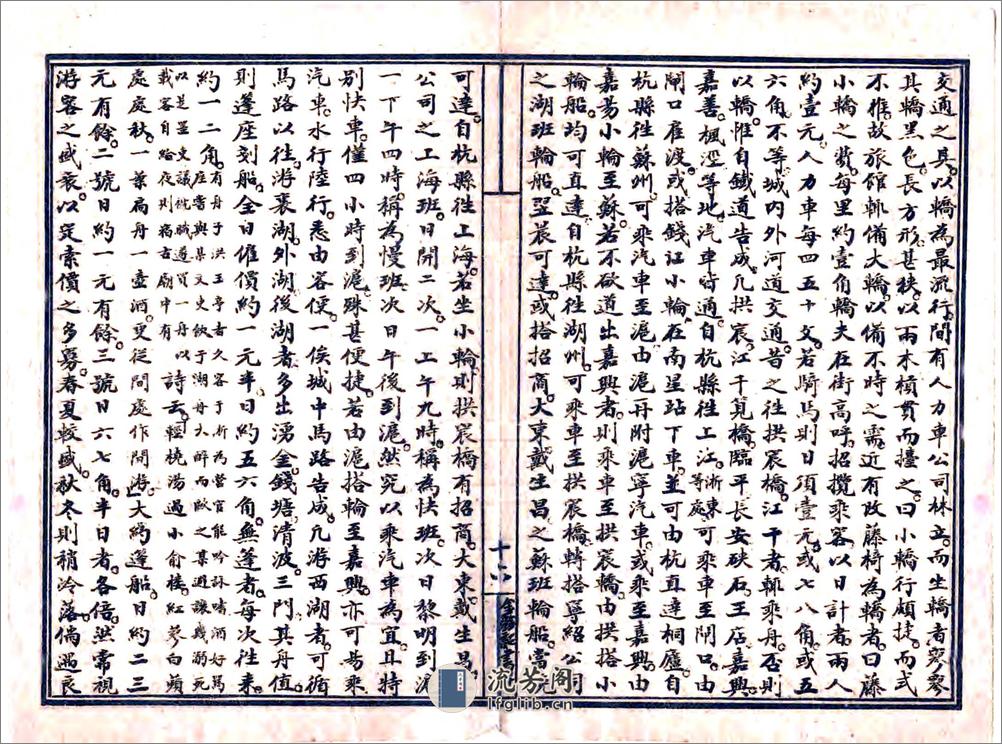 交通之具。以轎為最流行。間有人力車公司林立。而坐轎者寥寥
其轎黑色。長方形。甚狹。以兩木槓貫而擡之。曰小轎。行頗捷。而式
不雅。故旅館輒備大轎。以備不時之需。近有改藤椅為轎者。曰藤
小轎之費。每里約壹角。轎夫在街高呼。招攬乘客。以日計者。兩人
約壹元。人力車每四五十文。若騎馬則日須壹元。或七八角。或五
六角。不等。城內外河道交通。昔之往拱宸橋。江干者。輒乘舟。否則
以轎。惟自鐵道告成。凡拱宸。江干。筧橋。臨平。長安。硤石。王店。嘉興。
嘉善。楓涇等地。汽車皆通。自杭縣往上江。浙東等處。可乘車至閘口。由
閘口雇渡。或搭錢江小輪。在南星站下車。並可由杭直達桐廬。自
杭縣往蘇州。可乘汽車至滬。由滬再附滬寧汽車。或乘至嘉興。由
嘉易小輪至蘇。若不欲道出嘉興者。則乘車至拱宸橋。由拱搭小
輪船。均可直達。自杭縣往湖州。可乘車至拱宸橋。轉搭寧紹公司
之湖班輪船。翌晨可達。或搭招商。大東。戴生昌之蘇班輪船。當
十六
可達。自杭縣往上海。若坐小輪。則拱宸橋有招商。大東。戴生昌。
公司之上海班。日開二次。一上午九時。稱為快班。次日黎明到滬
一下午四時。稱為慢班。次日午後到滬。然究以乘汽車為宜。且特
別快車。僅四小時到滬。殊甚便捷。若由滬搭輪至嘉興。亦可易乘
汽車。水行陸行。悉由客便。一俟城中馬路告成。凡游西湖者。可循
馬路以往。游裏湖。外湖。後湖者。多出湧金。錢塘。清波。三門。其舟值
則蓬座刻船。全日僱價約一元半。日約五六角。無蓬者。每次往來。
約一二角。有舟子洪玉亭者。久客于析。為營官。能吟詠。嗜酒。好罵
座。嘗與某文史飲于湖舟。大醉而毆之。某避讓。幾溺死
以是罣吏議。褫職。遂買一舟。以
載客自給。夜則獨宿古廟中。有詩云。輕橈蕩過小俞樓。紅蓼白蘋
處處秋。一葉扁舟一壺酒。更從間處作間游。大約蓬船。日約二三
元有餘。二號日約一元有餘。三號日六七角。半日者。各倍。然常視
游客之盛衰。以定索價之多寡。春夏較盛。秋冬則稍冷落。倘遇良